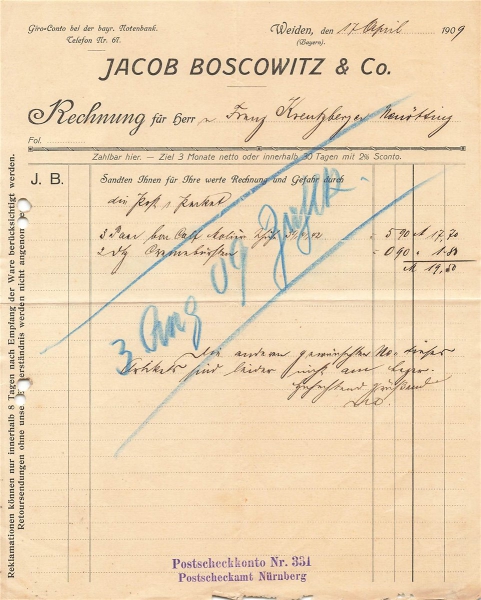 Giro-Conto bei der bayr. Notenbank.
Telefon Nr. 67.
Weiden, den 17 April 1909
(Bayern).
JACOB BOSCOWITZ & Co.
Rechnung für Herr Franz Kreutzberger Neuötting
Fol.
Zahlbar hier. — Ziel 3 Monate netto oder innerhalb 30 Tagen mit 2% Sconto.
J. B.
Sandten Ihnen für Ihre werte Rechnung und Gefahr durch
die Post 1 Packet
3 Paar box Calf 5 90 M 17,70
2 Dtz Cremebürsten 0,90 " 1.80
M 19,50
3 Aug 09
Die anderen gewünschten No. dieses
Artikels sind leider nicht am Lager.
Hochachtend grüssend
Reklamationen können nur innerhalb 8 Tagen nach Empfang der Ware berücksichtigt werden.
Retoursendungen ohne unser Einverständnis werden nicht angenommen
Postscheckkonto Nr. 331
Postscheckamt Nürnberg